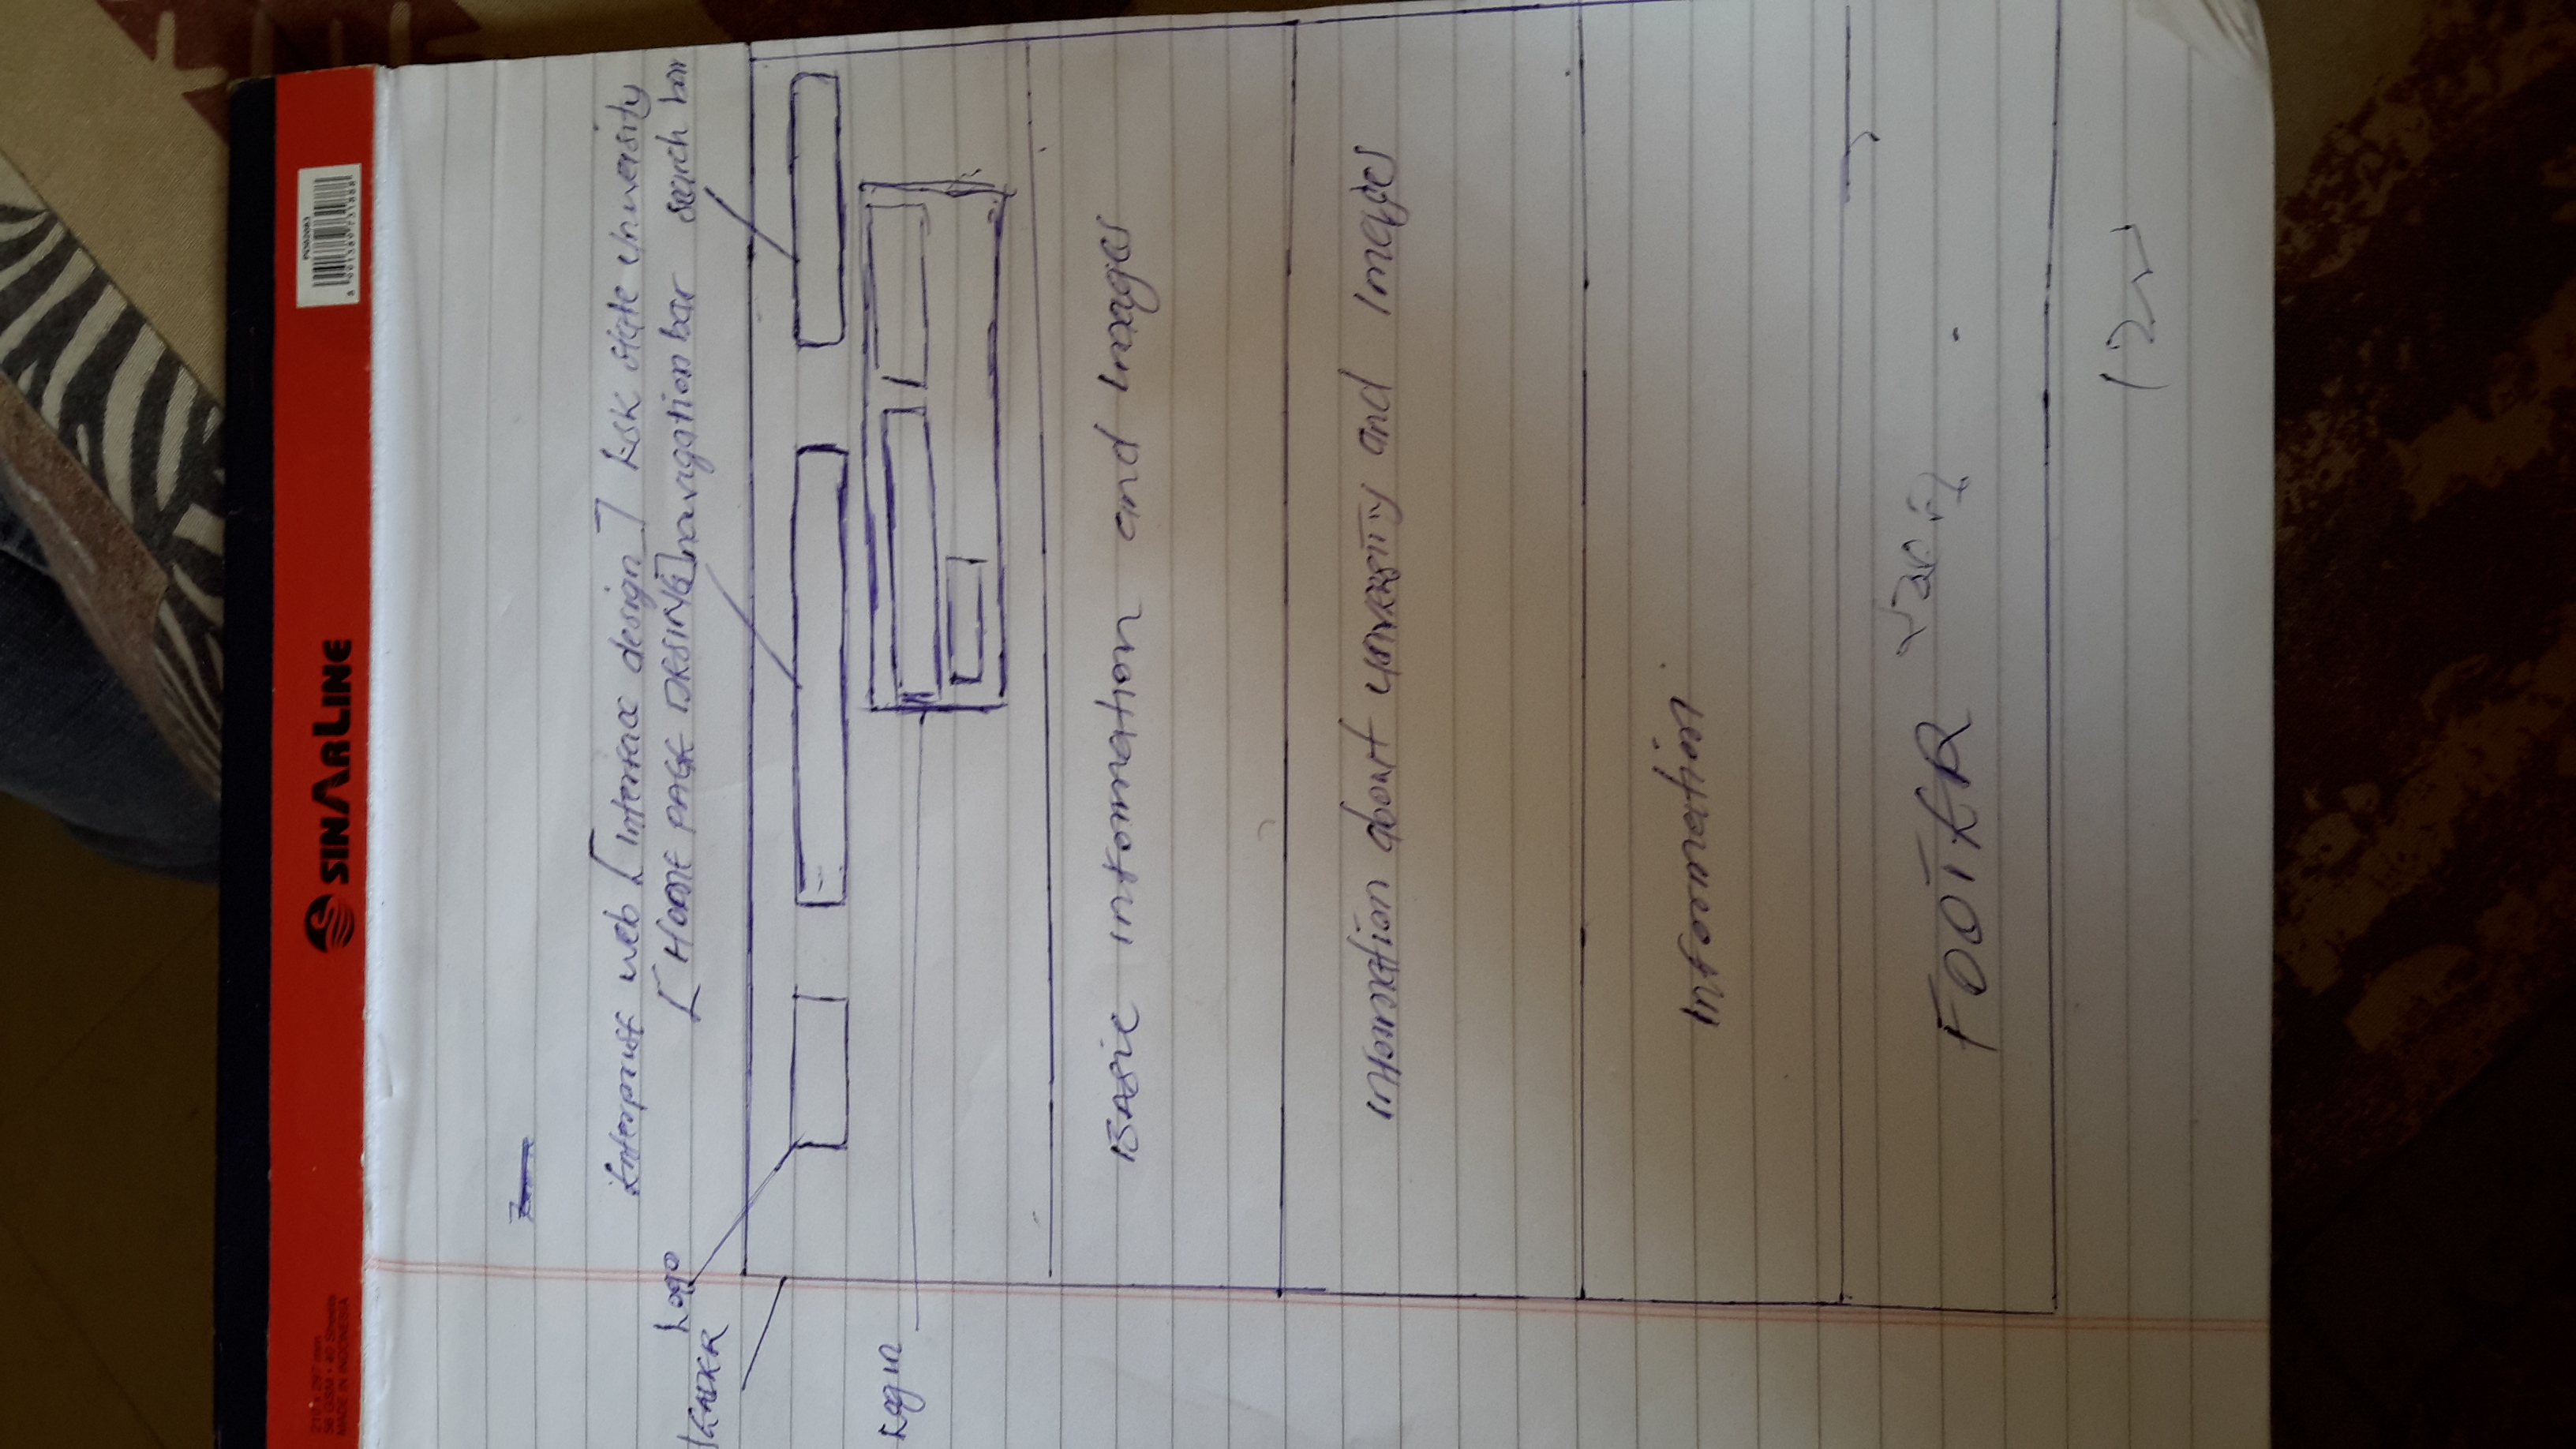 210 x 297 mm
56 GSM • 40 Sheets
MADE IN INDONESIA
SINARLINE
PO02083
Enterprise web [Interface design] KSK State University
[HOME PAGE DESING] navigation bar search bar
Logo
HEADER
Login
BASIC information and Images
Information about university and Images
Information
FOOTER